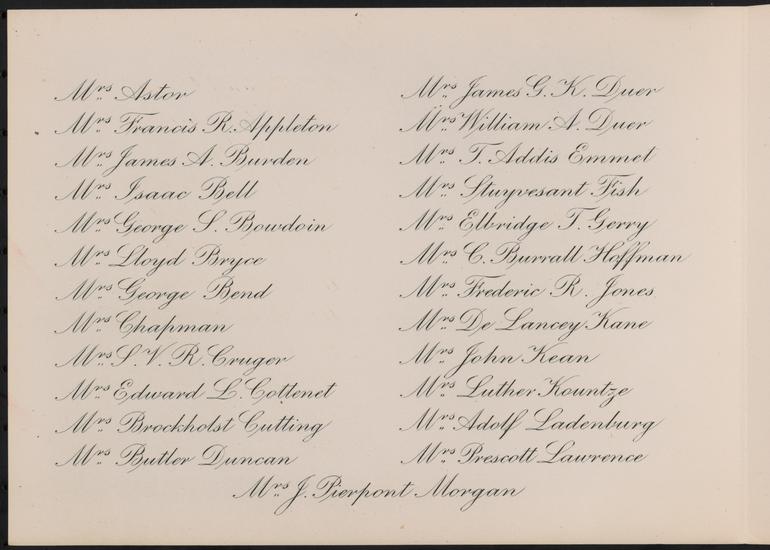 Mrs Astor
Mrs Francis R. Appleton
Mrs James A. Burden
Mrs Isaac Bell
Mrs George S. Bowdoin
Mrs Lloyd Bryce
Mrs George Bend
Mrs Chapman
Mrs S. V. R. Cruger
Mrs Edward L. Cottenet
Mrs Brockholst Cutting
Mrs Butler Duncan
Mrs James G. K. Duer
Mrs William A. Duer
Mrs T. Addis Emmet
Mrs Stuyvesant Fish
Mrs Elbridge T. Gerry
Mrs C. Burrall Hoffman
Mrs Frederic R. Jones
Mrs De Lancey Kane
Mrs John Kean
Mrs Luther Kountze
Mrs Adolf Ladenburg
Mrs Prescott Lawrence
Mrs J. Pierpont Morgan